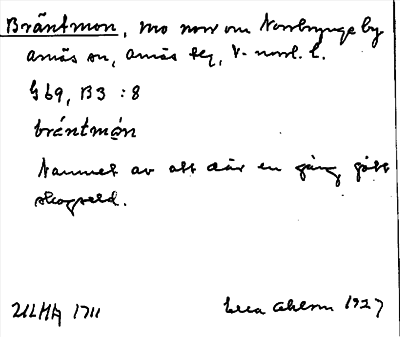 Bräntmon, mo norr om Norrbyngeby
Arnäs sn, Arnäs skg, V. norrl. l.
G 69, B3 : 8
bräntmón
Namnet av att där en gång gått
skogseld.
ULMA 1711 1927